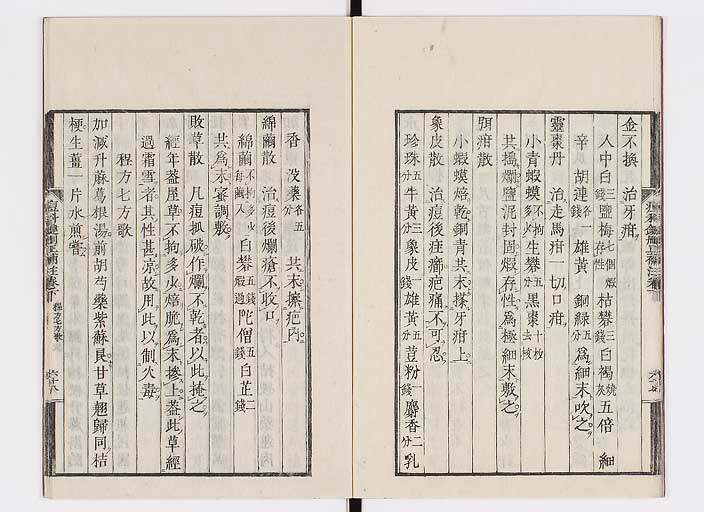 金不換 治牙疳
人中白三錢 鹽梅七個煅存性 枯礬三錢 白褐燒灰 五倍 細
辛 胡連各一錢 雄黃 銅綠五分 爲細末吹之
靈棗丹 治走馬疳一切口疳
小青蝦蟆不拘多少 生礬五分 黑棗十枚去核
共搗爛鹽泥封固煅存性爲極細末敷之
疳散
小蝦蟆焙乾銅青共末搽牙疳上
象皮散 治痘後疰癤疤痛不可忍
珍珠五分 牛黃三分 象皮錢 雄黃五分 荳粉一錢 麝香二分 乳
香 沒藥各五分 共末擦疤內
綿繭散 治痘後爛瘡不收口
綿繭不拘多少 白礬五錢 陀僧五錢 白芷二錢
共爲末蜜調敷
敗草散 凡痘抓破作爛不乾者以此掩之
經年蓋屋草不拘多少焙脆爲末摻上蓋此草經
過霜雪者其性甚凉故用此以制火毒
程方七方歌
加減升麻葛根湯前胡芎藥紫蘇良甘草翹歸同桔
梗生薑一片水煎嘗
程方七方歌
六十八